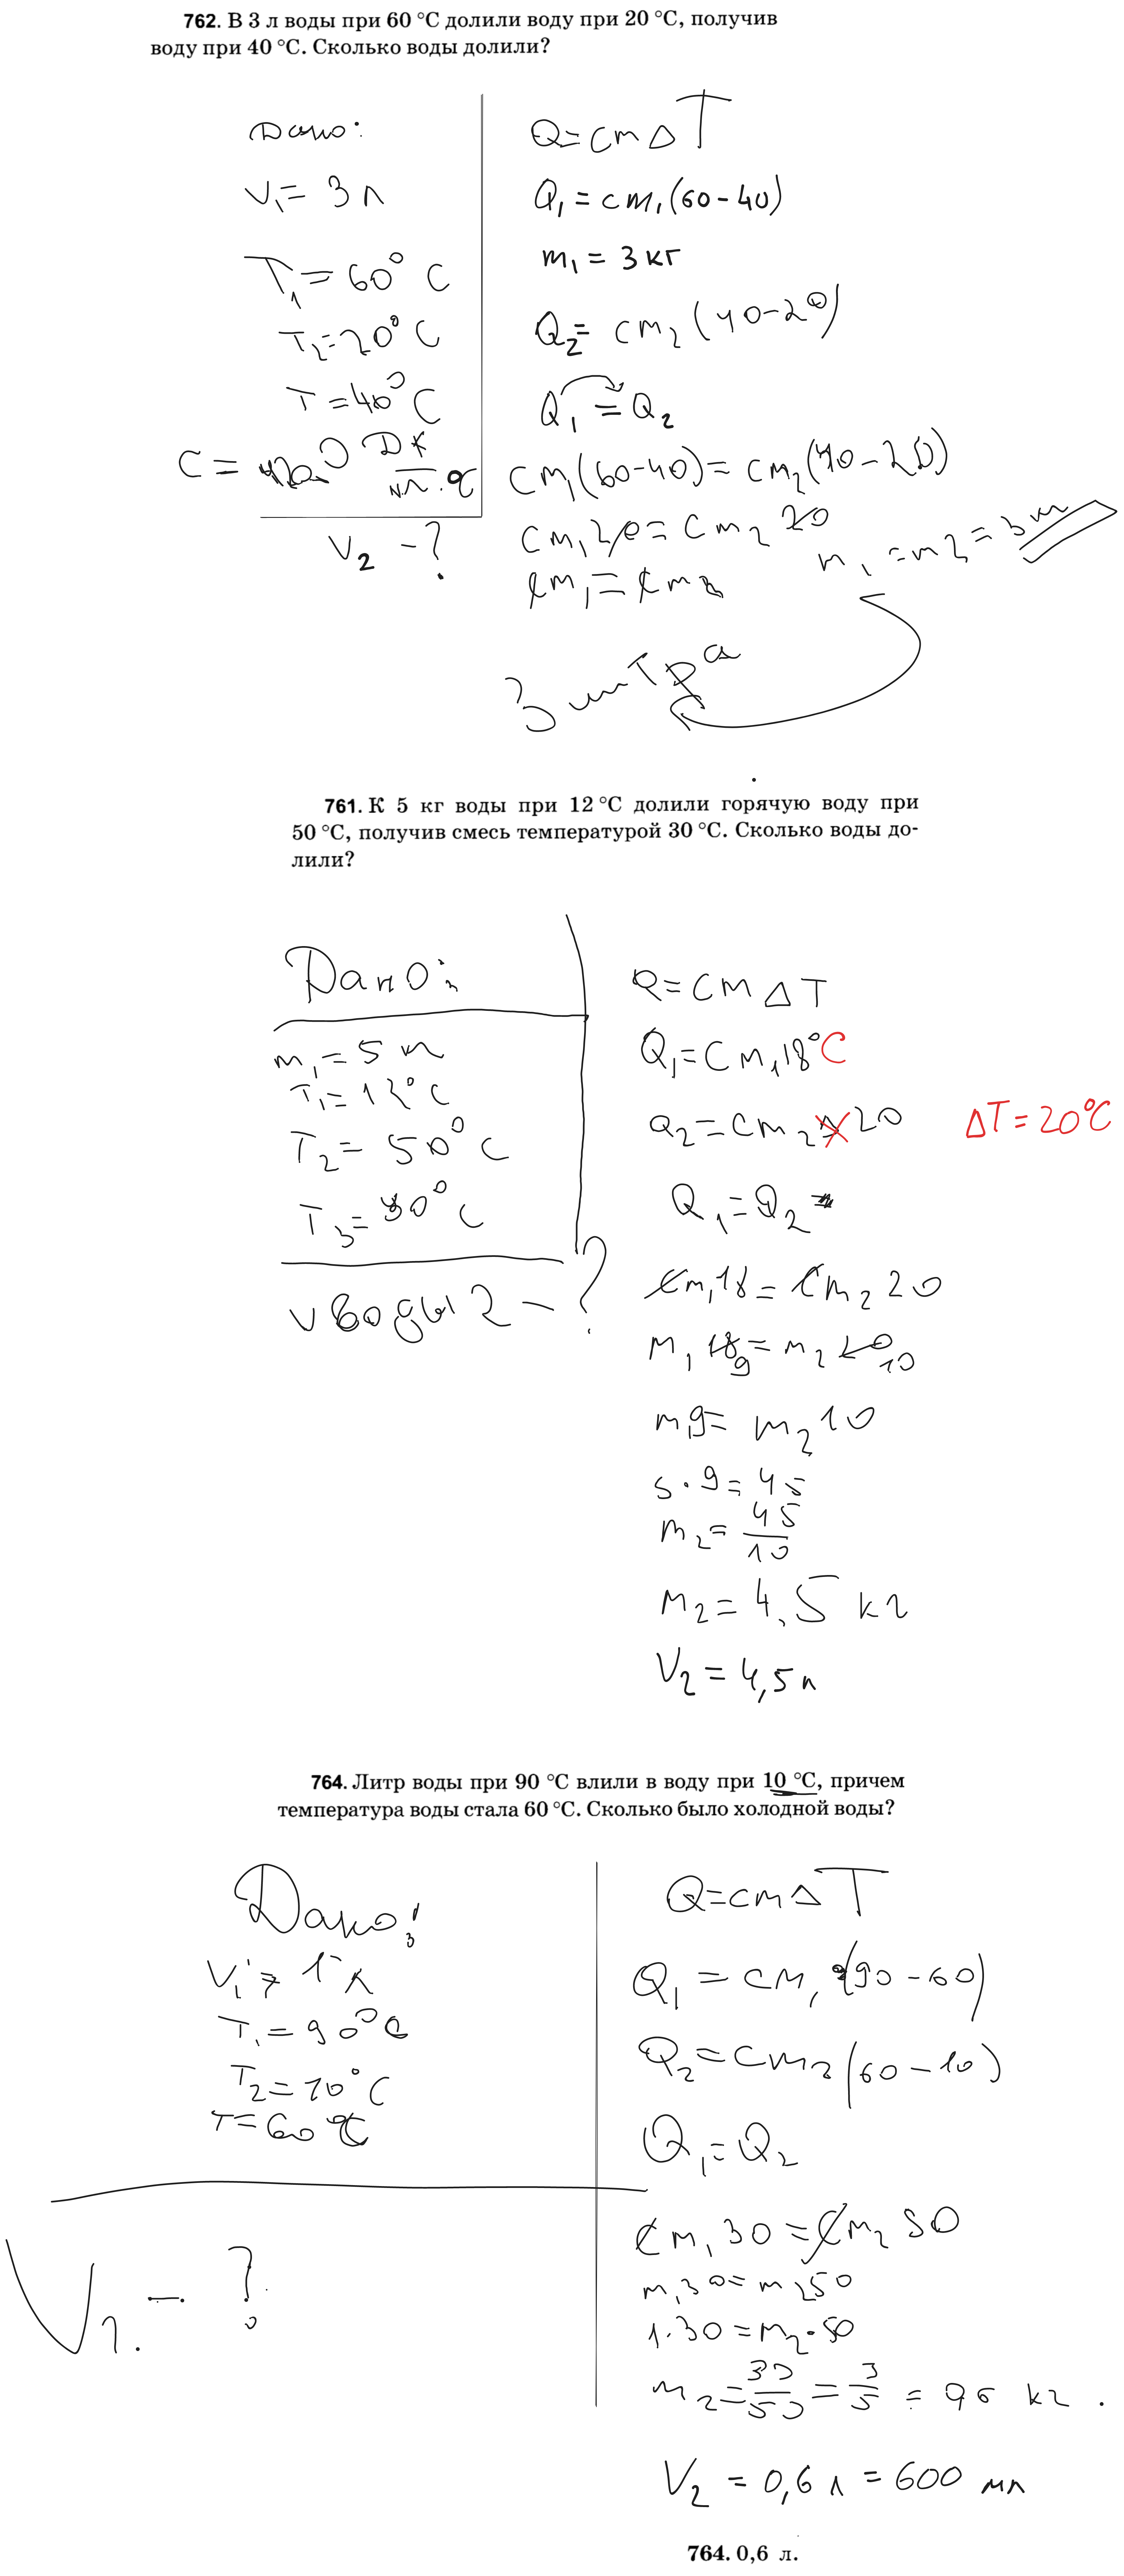 762. В 3 л воды при 60 °С долили воду при 20 °С, получив
воду при 40 °С. Сколько воды долили?
Дано:
V₁ = 3 л
T₁ = 60° C
T₂ = 20° C
T = 40° C
C = 4200 Дж
V₂ - ?
Q = cm Δ T
Q₁ = cm₁(60-40)
m₁ = 3 кг
Q₂ = cm₂(40-20)
Q₁ = Q₂
cm₁(60-40) = cm₂(40-20)
cm₁20 = cm₂ 20
cm₁ = cm₂
m₁ = m₂ = 3 кг
3 литра
761. К 5 кг воды при 12 °С долили горячую воду при
50 °С, получив смесь температурой 30 °С. Сколько воды до-
лили?
Дано:
m₁ = 5 кг
T₁ = 12° C
T₂ = 50° C
T₃ = 30° C
V воды 2 - ?
Q = cm Δ T
Q₁ = cm₁18°C
Q₂ = cm₂ 20 ΔT = 20°C
Q₁ = Q₂
cm₁18 = cm₂ 20
m₁ 18 9 = m₂ 20 10
m₁9 = m₂10
5 · 9 = 45
m₂ = 45/10
m₂ = 4,5 кг
V₂ = 4,5 л
764. Литр воды при 90 °С влили в воду при 10 °С, причем
температура воды стала 60 °С. Сколько было холодной воды?
Дано:
V₁ = 1 л
T₁ = 90°C
T₂ = 10° C
T = 60 °C
V₂ - ?
Q = cm Δ T
Q₁ = cm₁ (90-60)
Q₂ = cm₂ (60-10)
Q₁ = Q₂
cm₁ 30 = cm₂ 50
m₁30 = m₂50
1·30 = m₂·50
m₂ = 30/50 = 3/5 = 0,6 кг.
V₂ = 0,6 л = 600 мл
764. 0,6 л.